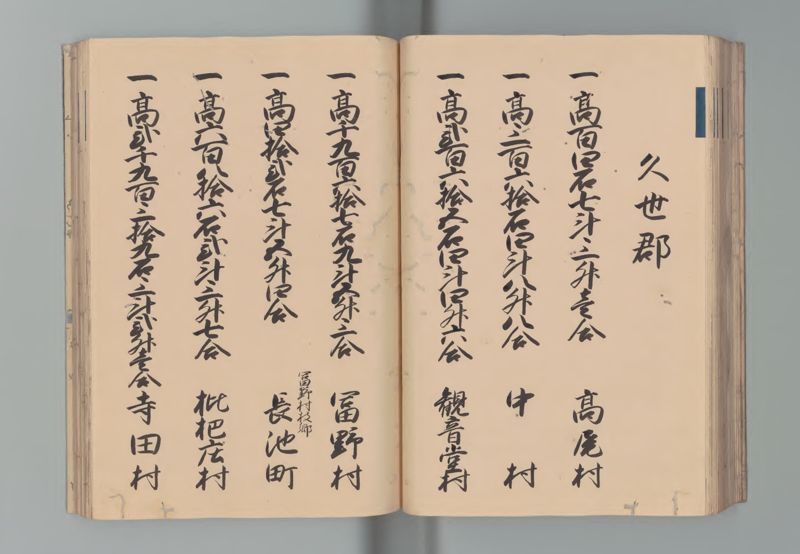 久世郡
一高百四石七斗三升壱合 高尾村
一高三百六拾石四斗八升八合 中村
一高弐百六拾五石四斗四升六合 観音堂村
一高千九百六拾七石九斗五升三合 冨野村
冨野村枝郷
一高四拾弐石七斗五升四合 長池町
一高六百八拾六石弐斗三升七合 枇杷庄村
一高弐千九百三拾九石三斗弐升壱合 寺田村